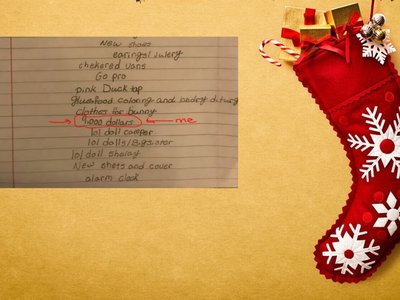 New shoes
earings/Julery
chekered vans
Go pro
pink Duck tap
food coloring and
clothes for bunny
4,000 dollars me
lol doll camper
lol dolls/Bigsister
lol doll
New shets and cover
alarm clock